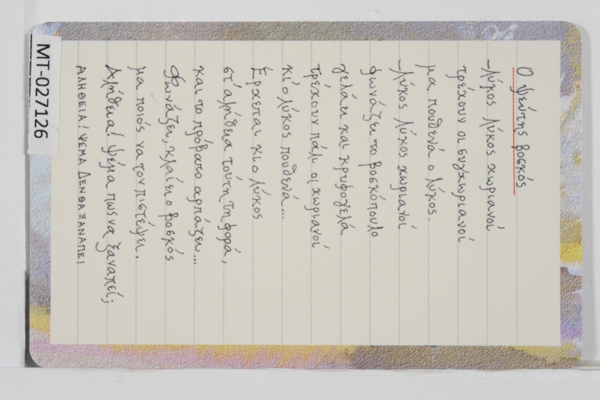 Ο ψεύτης βοσκός
-λύκος λύκος χωριανοί
τρέχουν οι συγχωριανοί
μα πουθενά ο λύκος.
-λύκος λύκος χωριανοί
φωνάζει το βοσκόπουλο
γελάει και κρυφογελά
τρέχουν πάλι οι χωριανοί
κι ο λύκος πουθενά...
Έρχεται κι ο λύκος
στ' αλήθεια τούτη τη φορά,
και το πρόβατο αρπάζει...
Φωνάζει, κλαίει ο βοσκός
μα ποιός να τον πιστέψει.
Αλήθεια! ψέμα πως να ξαναπεί;
ΑΛΗΘΕΙΑ! ΨΕΜΑ ΔΕΝ ΘΑ ΞΑΝΑΠΕΙ
MT-027126